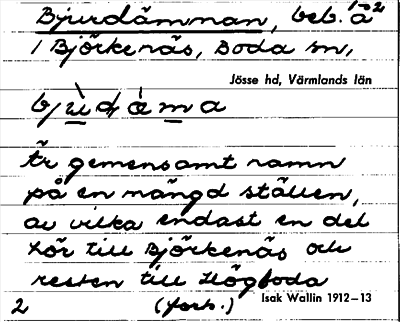 Bjurdämnan, beb. å²
i Björkenäs, Boda sn,
Jösse hd, Värmlands län
Är gemensamt namn
på en mängd ställen,
av vilka endast en del
hör till Björkenäs och
resten till Högboda
2 (forts.) Isak Wallin 1912–13